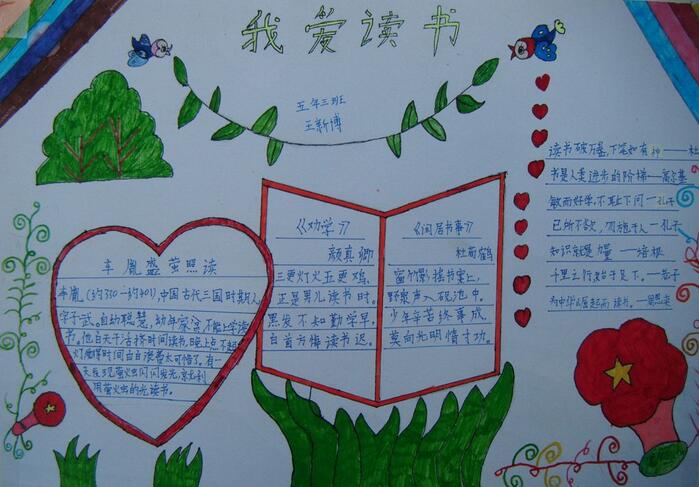 我爱读书
五年三班
王新博
车胤盛萤照读
车胤(约330—约401),中国古代三国时期人
字子武。自幼聪慧,幼年家
书。他白天干活挤时间读书,晚上
时间白白浪费太可惜了。有一
天他发现萤火虫闪闪发光,
用萤火虫的光读书。
《劝学》
颜真卿
三更灯火五更鸡,
正是男儿读书时。
黑发不知勤学早,
白首方悔读书迟。
《闲居书事》
杜荀鹤
窗竹影摇书案上,
野泉声入砚池中。
少年辛苦终事成,
莫向光明惰寸功。
读书破万卷,下笔如有神——杜
书是人类进步的阶梯——高尔基
敏而好学,不耻下问——孔子
己所不欲,勿施于人——孔子
知识就是力量——培根
千里之行始于足下。——老子
为中华之崛起而读书。——周恩来